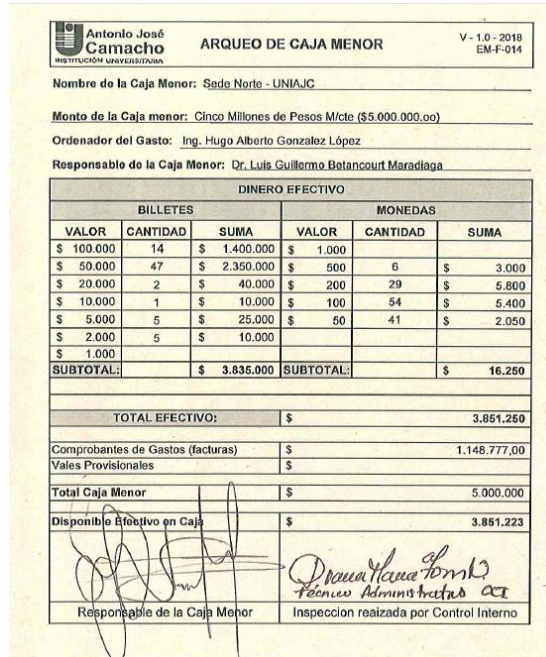 Antonio José
Camacho
INSTITUCIÓN UNIVERSITARIA
ARQUEO DE CAJA MENOR
V - 1.0 - 2018
EM-F-014
Nombre de la Caja Menor: Sede Norte - UNIAJC
Monto de la Caja menor: Cinco Millones de Pesos M/cte ($5.000.000.oo)
Ordenador del Gasto: Ing. Hugo Alberto Gonzalez López
Responsable de la Caja Menor: Dr. Luis Guillermo Betancourt Maradiaga
DINERO EFECTIVO
BILLETES MONEDAS
VALOR CANTIDAD SUMA VALOR CANTIDAD SUMA
$ 100.000 14 $ 1.400.000 $ 1.000
$ 50.000 47 $ 2.350.000 $ 500 6 $ 3.000
$ 20.000 2 $ 40.000 $ 200 29 $ 5.800
$ 10.000 1 $ 10.000 $ 100 54 $ 5.400
$ 5.000 5 $ 25.000 $ 50 41 $ 2.050
$ 2.000 5 $ 10.000
$ 1.000
SUBTOTAL: $ 3.835.000 SUBTOTAL: $ 16.250
TOTAL EFECTIVO: $ 3.851.250
Comprobantes de Gastos (facturas) $ 1.148.777,00
Vales Provisionales $
Total Caja Menor $ 5.000.000
Disponible Efectivo en Caja $ 3.851.223
Tecnico Administrativo OCI
Responsable de la Caja Menor Inspeccion reaizada por Control Interno